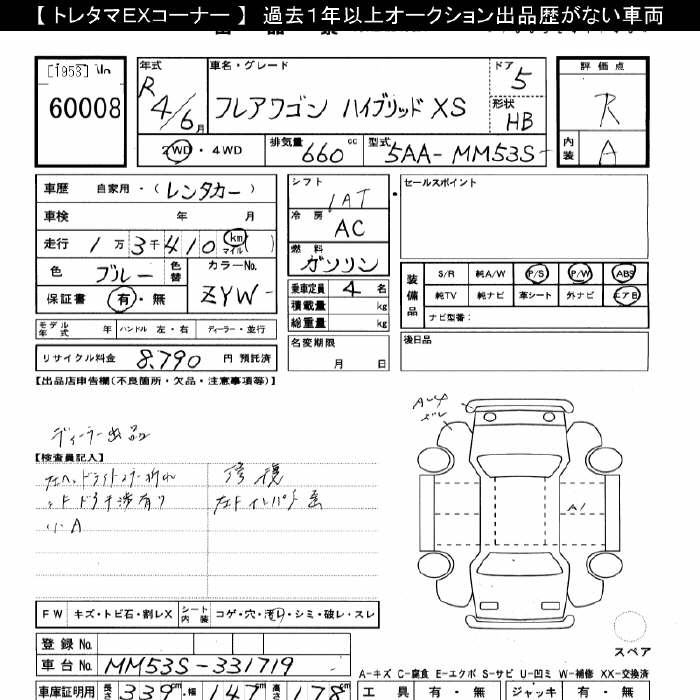 【 トレタマEXコーナー 】 過去1年以上オークション出品歴がない車両
60008
年式 R 4/6月
車名・グレード フレアワゴン ハイブリッド XS
ドア 5
形状 HB
評価点 R
内装 A
2WD・4WD
排気量 660 cc
型式 5AA-MM53S
車歴 自家用・(レンタカー)
車検 年 月
走行 1万3千410 km マイル ( )
色 ブルー 色替
カラーNo. ZYW
保証書 有・無
シフト IAT
冷房 AC
燃料 ガソリン
乗車定員 4 名
積載量 kg
総重量 kg
セールスポイント
装備品 S/R 純A/W P/S P/W ABS
純TV 純ナビ 革シート 外ナビ エアB
ナビ型番:
モデル年式 年 ハンドル 左・右 ディーラー・並行
リサイクル料金 8,790 円 預託済
名変期限 月 日
後日品
【出品店申告欄(不良箇所・欠品・注意事項等)】
ディーラー出品
【検査員記入】
修復
小A
A1
FW キズ・トビ石・割レX シート内装 コゲ・穴・汚レ・シミ・破レ・スレ
スペア
登録 No.
車台 No. MM53S-331719
A-キズ C-腐食 E-エクボ S-サビ U-凹ミ W-補修 XX-交換済
車庫証明用 長さ 339cm 幅 147cm 高さ 178cm
工具 有・無 ジャッキ 有・無